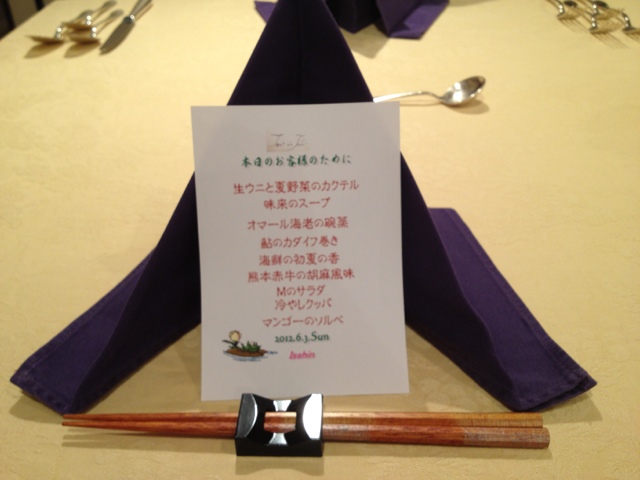 本日のお客様のために
生ウニと夏野菜のカクテル
味来のスープ
オマール海老の碗蒸
鮎のカダイフ巻き
海鮮の初夏の香
熊本赤牛の胡麻風味
Mのサラダ
冷やしクッパ
マンゴーのソルベ
2012.6.3.Sun